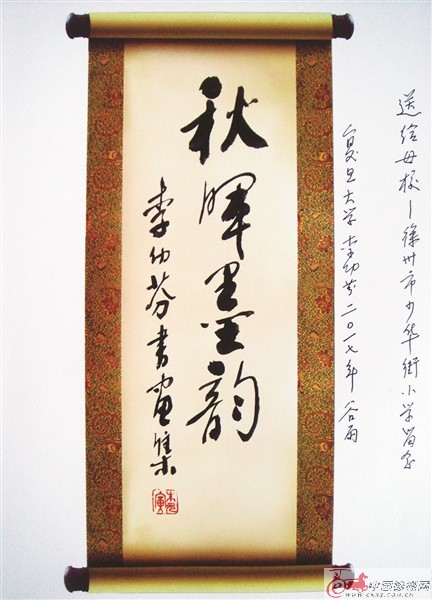 送给母校—徐州市少华街小学留念
复旦大学 李幼芬 二〇一七年 谷雨
秋暉墨韵
李幼芬書畫集
中国徐州网
www.cnxz.com.cn